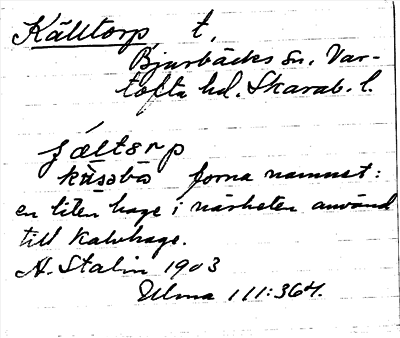 Källtorp, t,
Bjurbäcks sn. Var-
tofta hd. Skarab. l.
fæltorp
kässbo forna namnet:
en liten hage i närheten använd
till kalvhage.
A. Stalin 1903
Ulma 111:364.